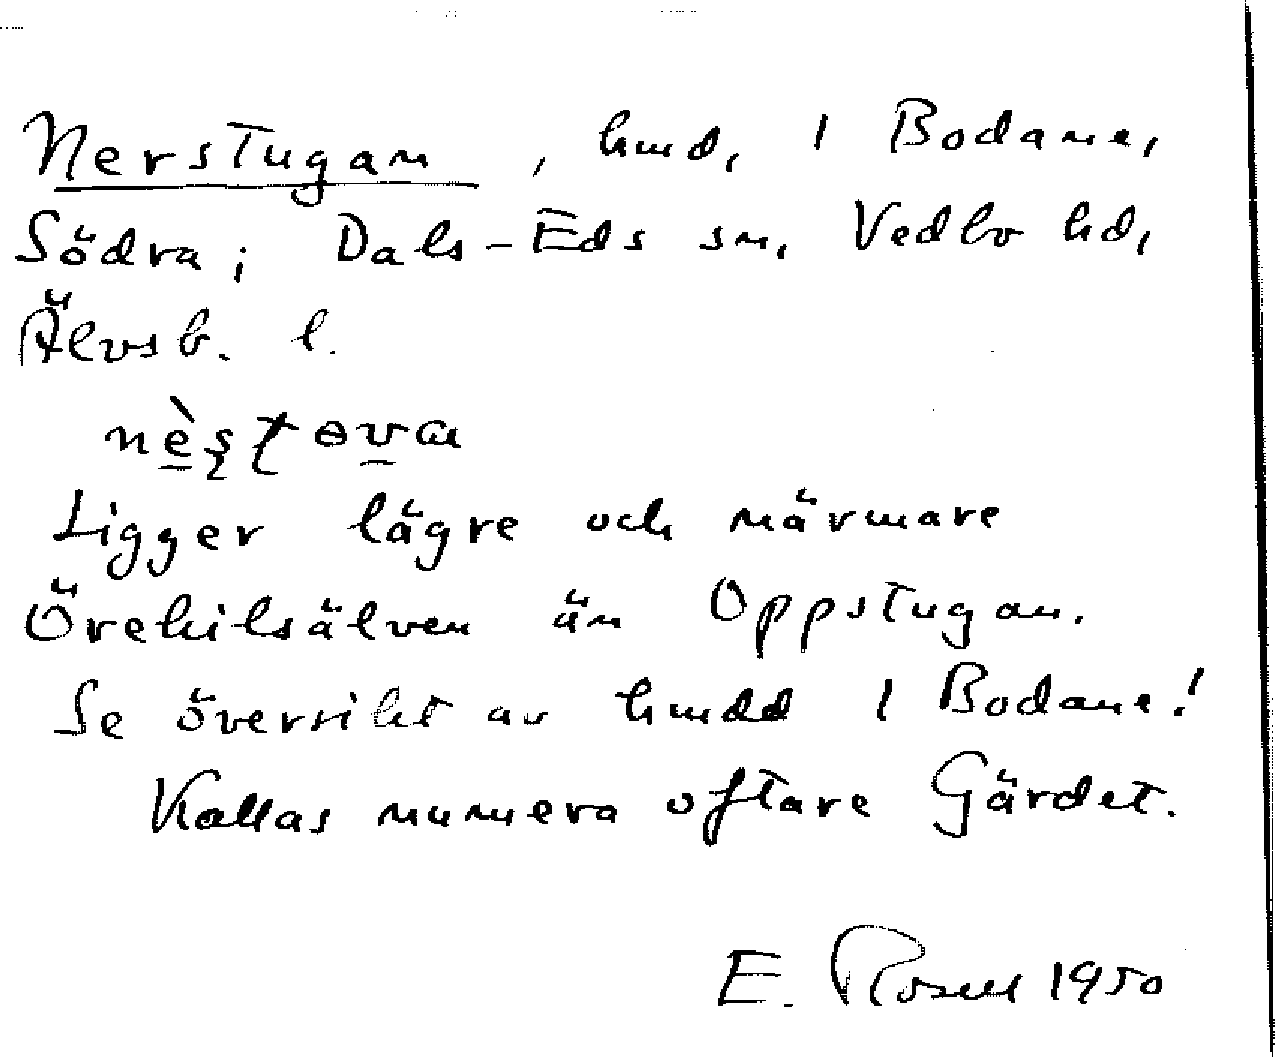 Nerstugan, hmd, 1 Bodane,
Södra; Dals-Eds sn, Vedbo hd,
Älvsb. l.
Ligger lägre och närmare
Örekilsälven än Oppstugan.
Se översikt av hmdd 1 Bodane!
Kallas numera oftare Gärdet.
E. Rosell 1950